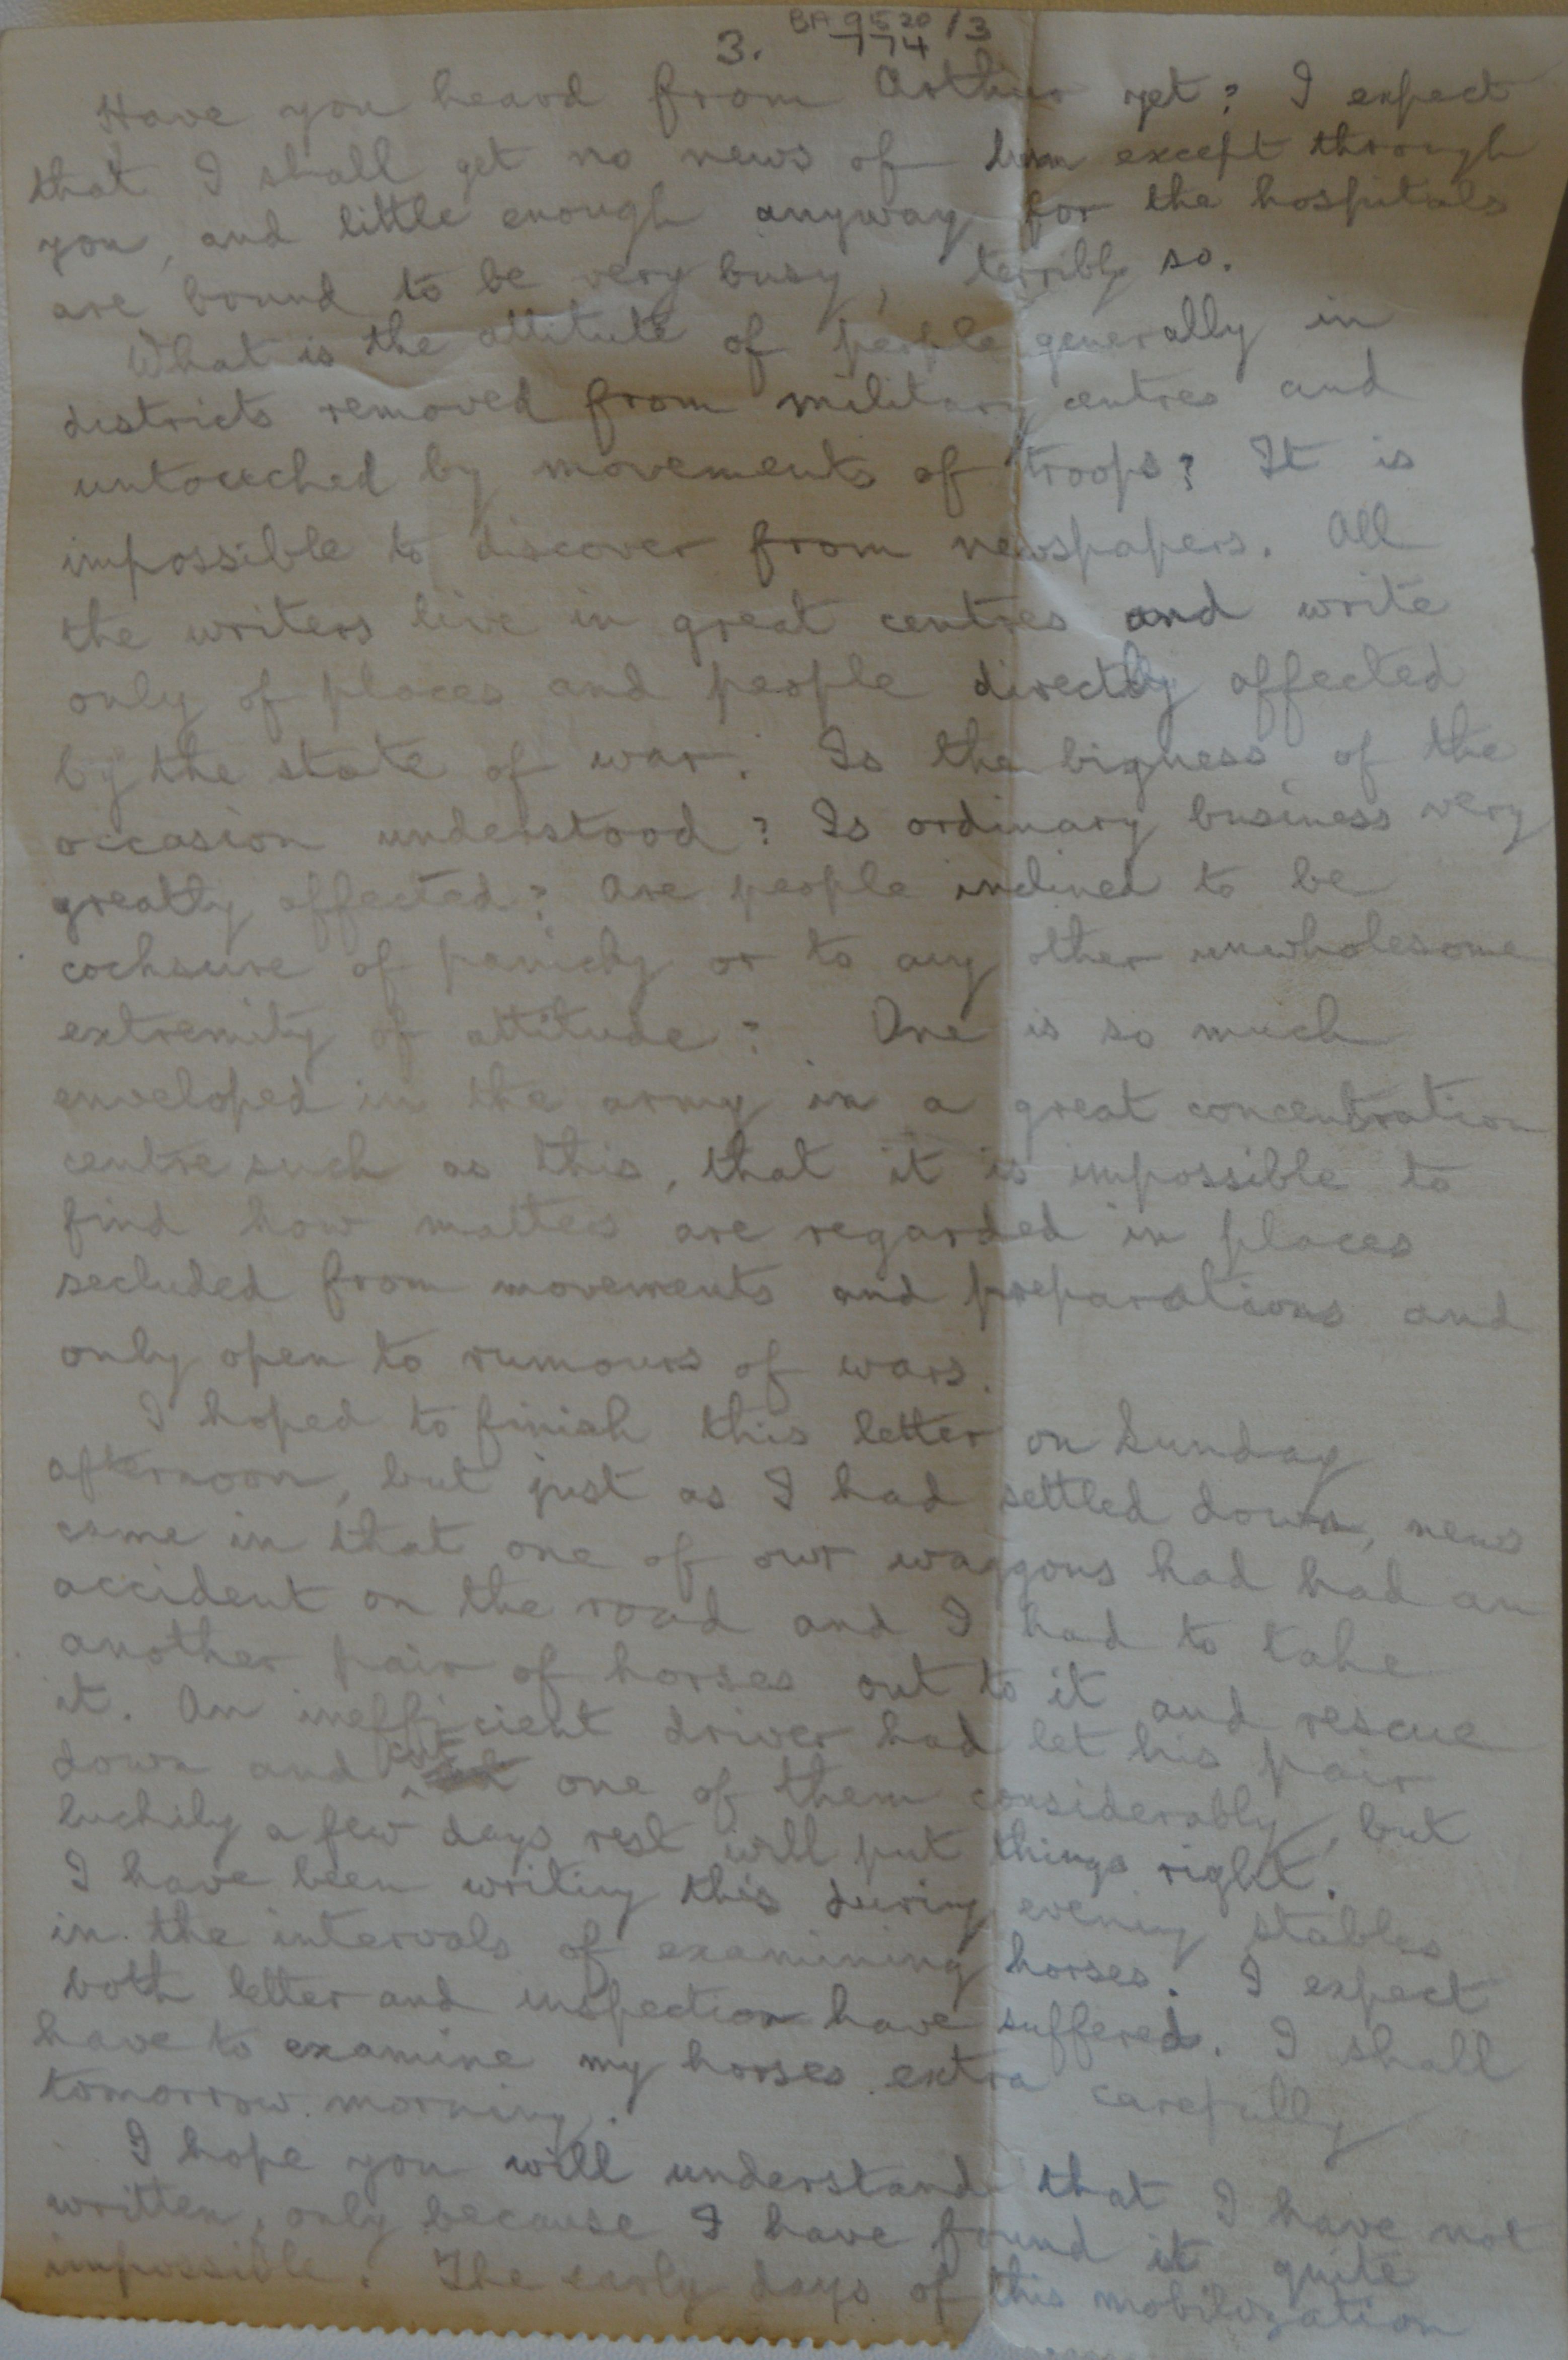 3. BA 9520/3
774
Have you heard from Arthur yet? I expect
that I shall get no news of him except through
you, and little enough anyway for the hospitals
are bound to be very busy, terribly so.
What is the attitute of people generally in
districts removed from military centres and
untouched by movements of troops? It is
impossible to discover from newspapers. All
the writers live in great centres and write
only of places and people directly affected
by the state of war. Is the bigness of the
occasion understood? Is ordinary business very
greatly affected? Are people inclined to be
cocksure of panicky or to any other unwholesome
extremity of attitude? One is so much
enveloped in the army in a great concentration
centre such as this, that it is impossible to
find how matters are regarded in places
secluded from movements and preparations and
only open to rumours of wars.
I hoped to finish this letter on Sunday
afternoon, but just as I had settled down, news
came in that one of our waggons had had an
accident on the road and I had to take
another pair of horses out to it and rescue
it. An inefficient driver had let his pair
down and cut one of them considerably, but
luckily a few days rest will put things right.
I have been writing this during evening stables
in the intervals of examining horses. I expect
both letter and inspection have suffered. I shall
have to examine my horses extra carefully
tomorrow morning.
I hope you will understand that I have not
written, only because I have found it quite
impossible. The early days of this mobilization